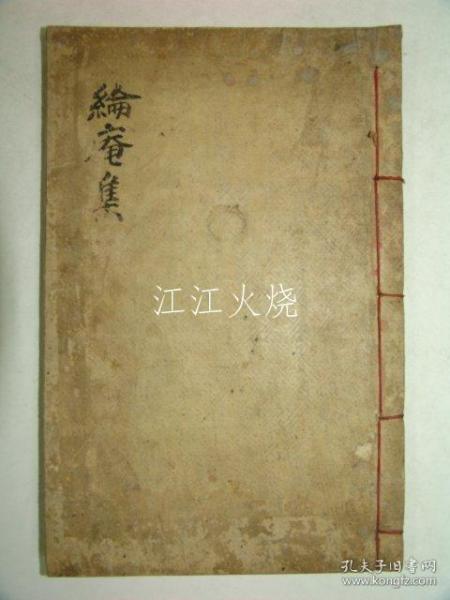 綸庵集
江江火烧
孔夫子旧书网
www.kongfz.com